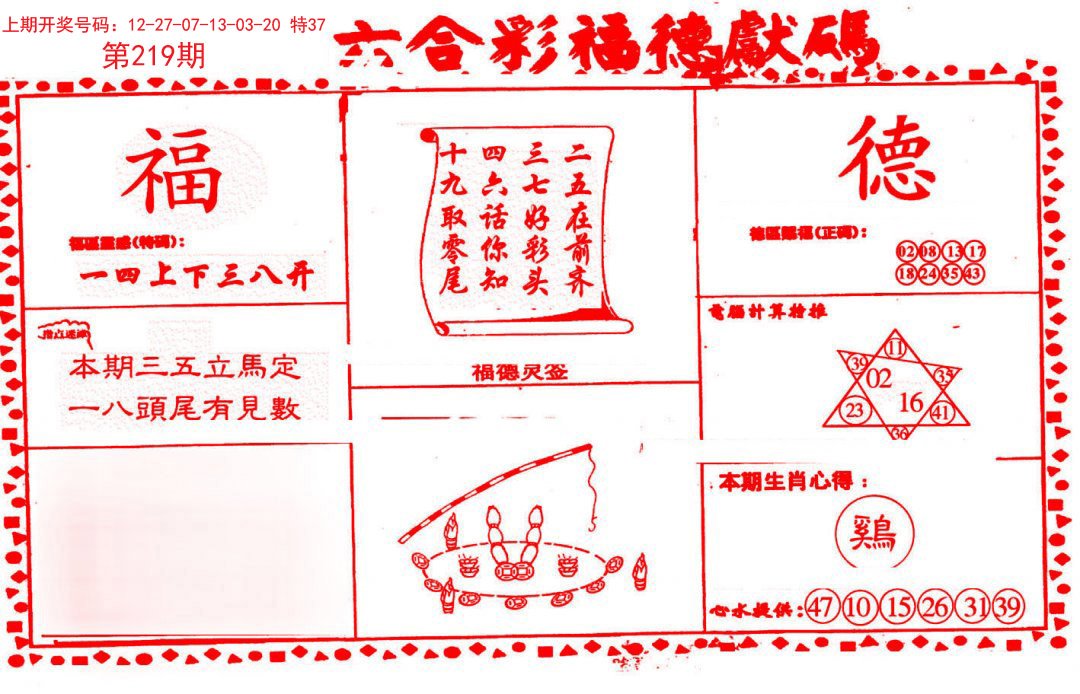 上期开奖号码：12-27-07-13-03-20 特37
第219期
六合彩福德獻碼
福
福區靈感(特碼)：
一四上下三八开
指点迷津
本期三五立馬定
一八頭尾有見數
二五在前齐
三七好彩头
四六话你知
十九取零尾
福德灵签
德
德區賜福(正碼)：
02 08 13 17
18 24 35 43
電腦計算精推
11
39 02 35
23 16 41
36
本期生肖心得：
鷄
心水提供：47 10 15 26 31 39